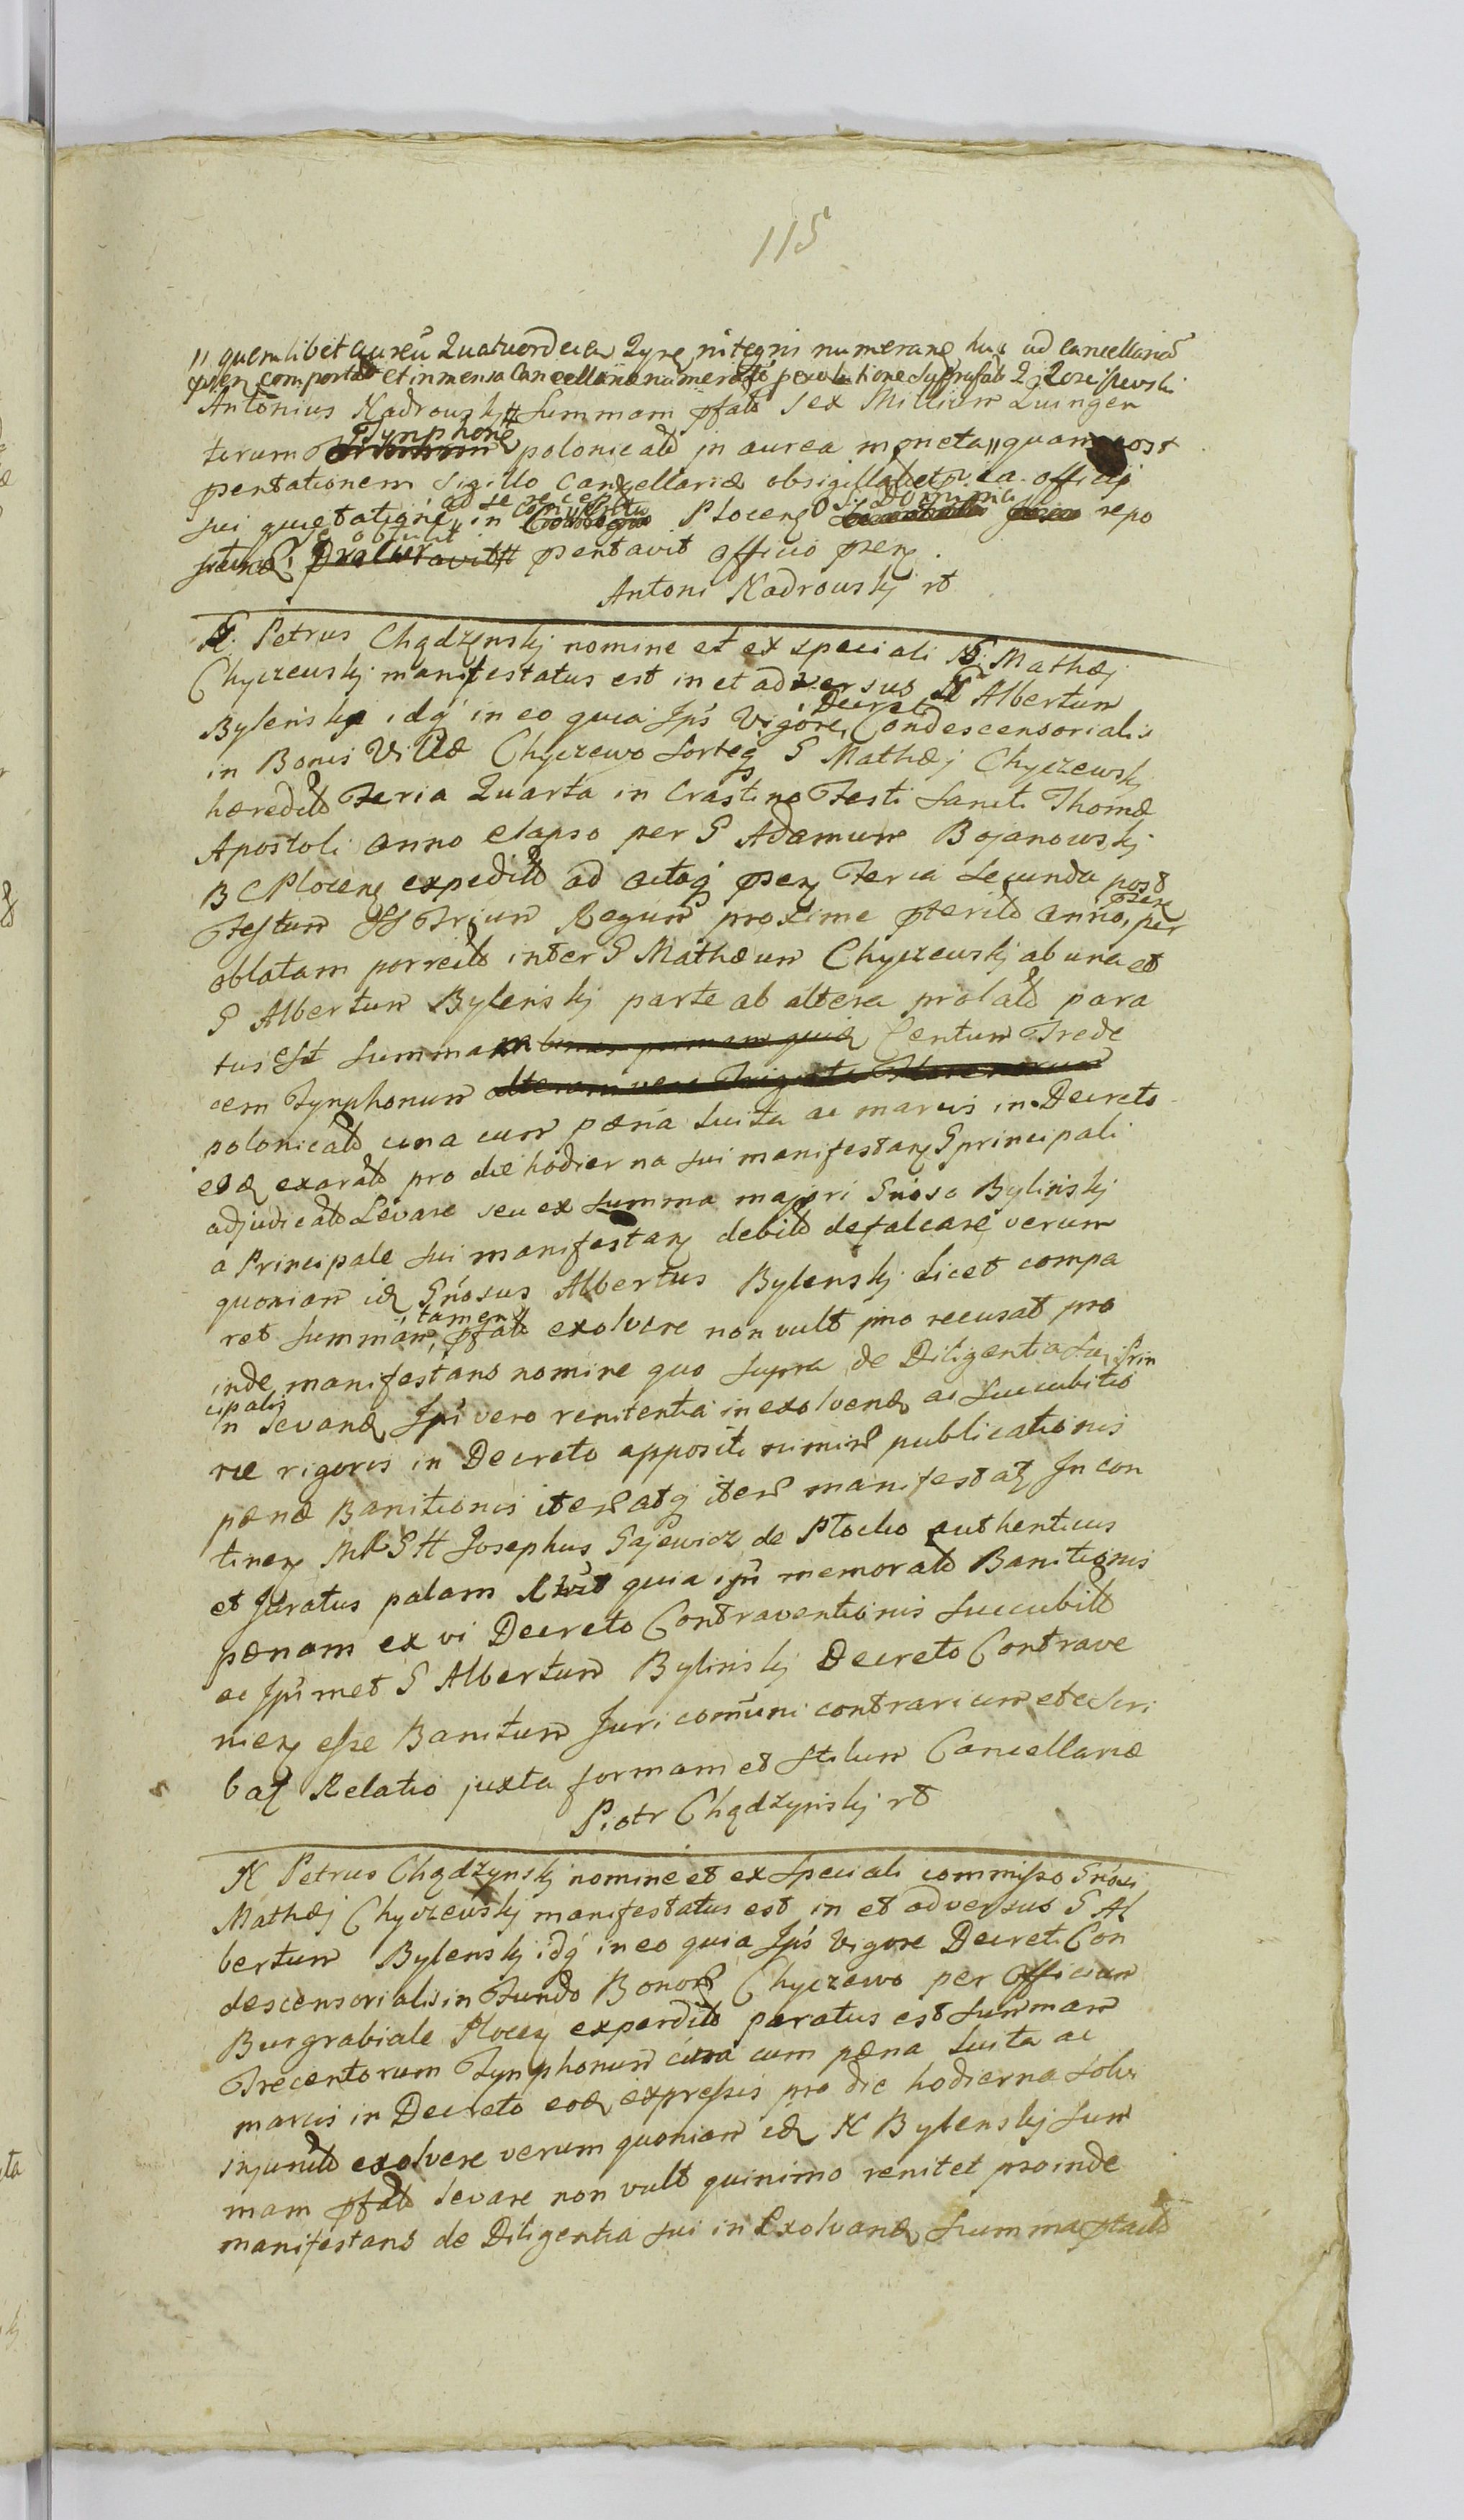 115
" quemlibet aureũ Quatuordecim Tynf integri numerane huc ad cancellariã
comportat et in mensa Cancellariæ
Antonius Nadrowskj # Summam pfatō sex Millium Quingen
terum Tymphonę polonicalō in aurea moneta " quam post
pentationem Sigillo Canncellariæ obsigillabet officij
sui quietationę " ad se recepę in Plocenę repo
se obtulit # pentavit officio pseñ.
Antoni Nadrowskj rō
G. Petrus Chądzynskj nomine et ex speciali G. Mathæj
Chyczewskj manifestatus est in et adversus G Albertum
Bylenskj idq in eo quia Ips Vigore Decreti Condescensorialis
in Bonis Villæ Chyczewo Sorteq G Mathæj Chyczewskj
hæreditō Feria Quarta in Crastino Festi Sancti Thomæ
Apostoli anno elapso per G Adamum Bojanowskj
B C Plocenę expeditō ad actaq psen Feria Secunda post
Festum SS Trium Regum proxime pteritō anno, psene per
oblatam porrectō inter G Mathæum Chyczewskj ab una et
G Albertum Bylenskj parte ab altera prolatō para
tus est Summam Centum Trede
cem Tynphonum
polonicalō una cum pæna Luita ac marcis in Decreto
eoę exaratō pro die hodierna sui manifestanę G principali
adjudicatō Levare seu ex Summa majori Gñoso Bylinskj
a Principale sui manifestanę debitō defalcare verum
quoniam ię Gñosus Albertus Bylenskj licet compa
ret Summam, tamen pfatō exolvere non vult imo recusat pro
inde manifestans nomine quo supra de Diligentia sui Prin
cipalis
in Levanę Ipi vero renitentia in exolvenę ac Succubitio
ne rigoris in Decreto appositi nimirę publicationis
pænæ Banitionis iterę atq iterę manifestaę In con
tinenę MRSH Josephus Gajewicz de Płocko authenticus
et Juratus palam Rłvit quia ipi memoratō Banitionis
pænam ex vi Decreto Contraventionis Succubitō
ac Ipimet G Albertum Bylinskj Decreto Contrave
nienę esse Banitum Juri comũni contrarium etc Scri
baę Relatio juxta formam et Stilum Cancellariæ
Piotr Chądzynskj rō
N Petrus Chądzynskj nomine et ex Speciali commisso Gñosi
Mathæj Chyczewskj manifestatus est in et adversus G Al
bertum Bylenskj idq in eo quia Ips Vigore Decreti Con
descensorialis in Fundo Bonorę Chyczewo per Officium
Burgrabiale Plocenę expeditō paratus est Summam
Trecentorum Tynphonum una cum pæna Luita ac
marcis in Decreto eoę expressis pro die hodierna solvi
injunctō exolvere verum quoniam ię N Bylenskj Sum
mam pfatō Levare non vult quinimo renitet proinde
manifestans de Diligentia sui in Exolvenę Summa ptactō